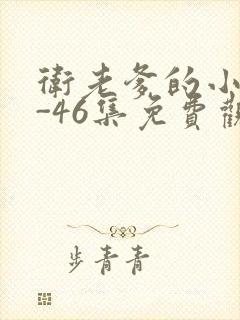 衛老爹的小
-46集免費觀
步青青